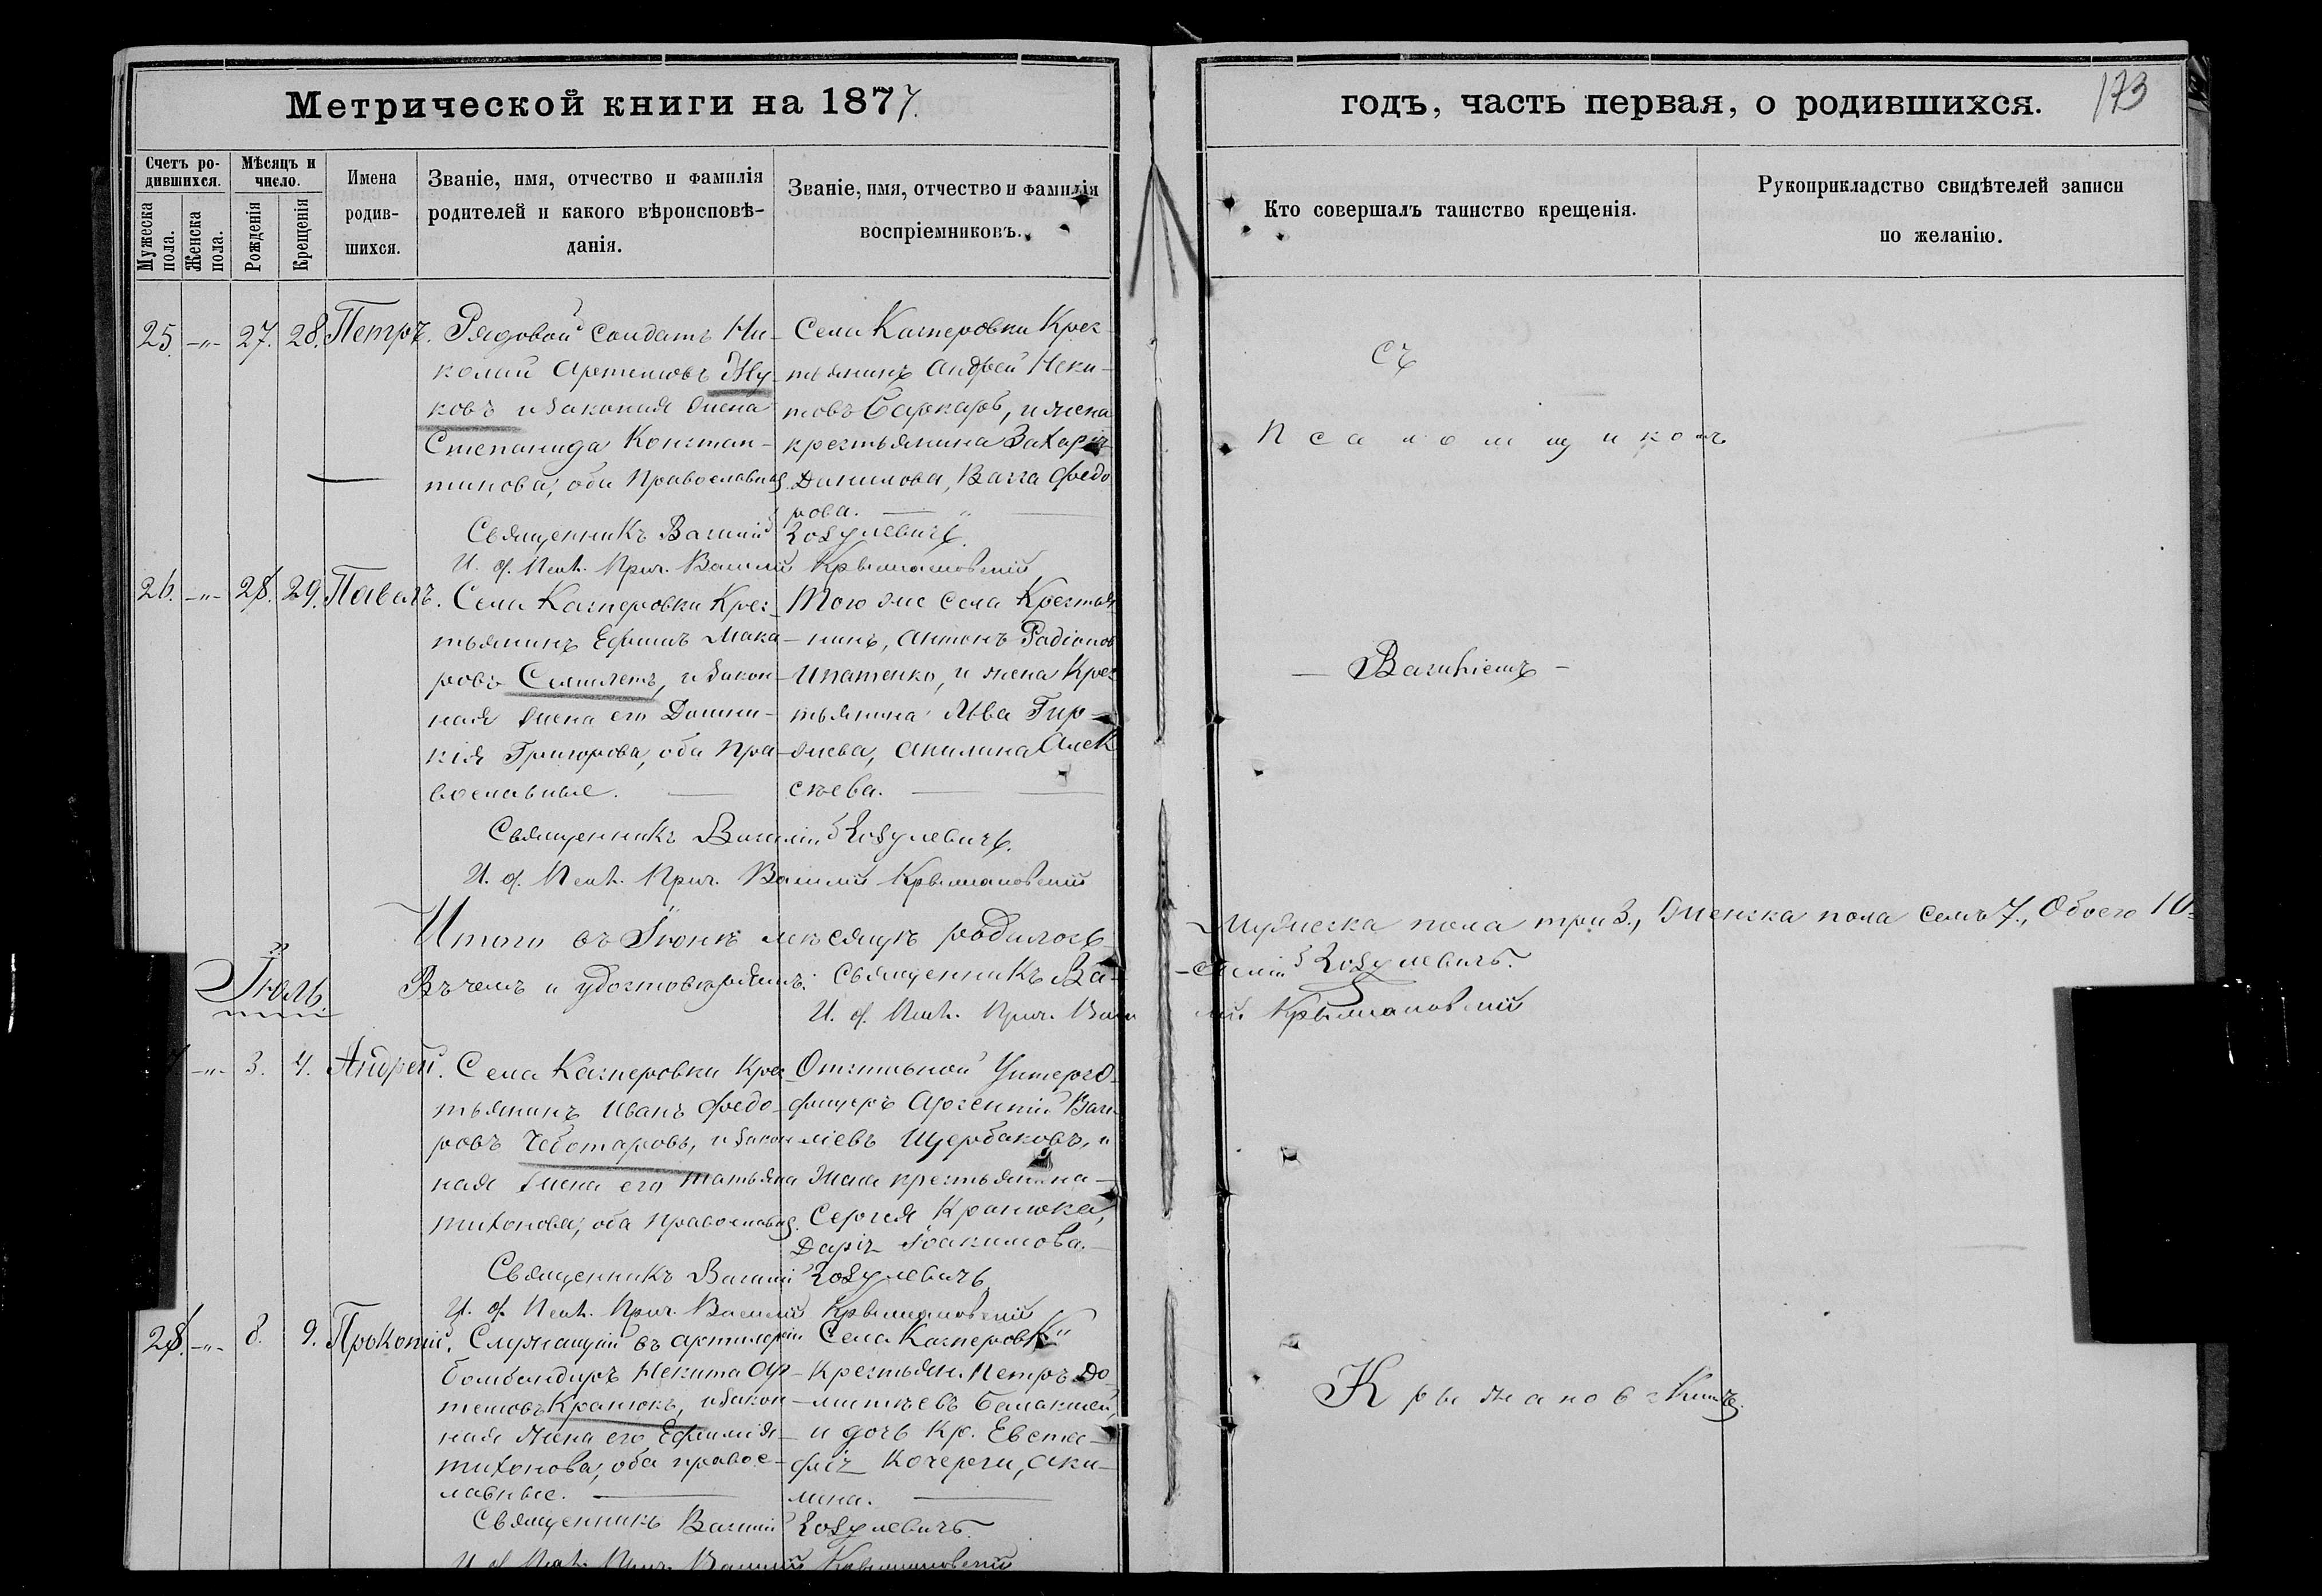 Метрической книги на 1877.
годъ, часть первая, о родившихся.
173
Счетъ ро-
дившихся.
Мужеска пола.
Женска пола.
Мѣсяцъ и
число.
Рожденія
Крещенія
Имена
родив-
шихся.
Званіе, имя, отчество и фамилія
родителей и какого вѣроисповѣ-
данія.
Званіе, имя, отчество и фамилія
воспріемниковъ.
Кто совершалъ таинство крещенія.
Рукоприкладство свидѣтелей записи
по желанію.
25. -"- 27. 28. Петръ.
Рядовой солдатъ Ни-
колай Артемовъ Жу-
ковъ и законая жена
Степанида Констан-
тинова, оба Православны.
Села Каспировки Крес-
тьянинъ Андрей Ники-
товъ, и жена
крестьянина Захарія
Данилова, Васса Федо
рова.
Священникъ Василій Козулевичъ.
И. д. Псал. Прич. Василій Крыжановскій
съ
Псаломщикомъ
26. -"- 28. 29. Павелъ.
Села Касперовки Крес-
тьянинъ Ефимъ Мака-
ровъ, и закон-
ная жена его Домни-
кія Григорова, оба Пра-
вославные.
Того же села Крестья-
нинъ, Антонъ Радіонов
Ипатенко, и жена Крес
тьянина Льва Гир-
жева, Акилина Алек
сѣева.
Священникъ Василій Козулевичъ.
И. д. Псал. Прич. Василій Крыжановскій
- Василіемъ -
Итого въ Іюнѣ мѣсяцѣ родилось Мужеска пола три 3., Женска пола семь 7., Обоего 10.
Въ чемъ и удостовѣряемъ: Священникъ Ва-силій Козулевичъ.
И. д. Псал. Прич. Василій Крыжановскій
Іюль
-"- 3. 4. Андрей.
Села Касперовки Крес-
тьянинъ Иванъ Федо-
ровъ Чеботаровъ, и закон
ная жена его Татьяна
Тихонова, оба Православны.
Отставной Унтеръ О-
фицеръ Арсеній Васи-
ліевъ Щербаковъ, и
жена крестьянина
Сергея Кранюка,
Дарія Іоакимова.
Священникъ Василій Козулевичъ
И. д. Псал. Прич. Василій Крыжановскій
28. -"- 8. 9. Прокопій.
Служащій въ артилеріи
бомбандиръ Никита Ар-
темовъ Кранюкъ, и закон-
ная жена его Ефимія
Тихонова, оба правос-
лавные.
Села Касперовки
Крестьян. Петръ До-
и дочь Кр. Евста-
фія Кочерги, Аки-
лина.
Священникъ Василій Козулевичъ.
И. д. Псал. Прич. Василій Крыжановскій
Крыжановскимъ.